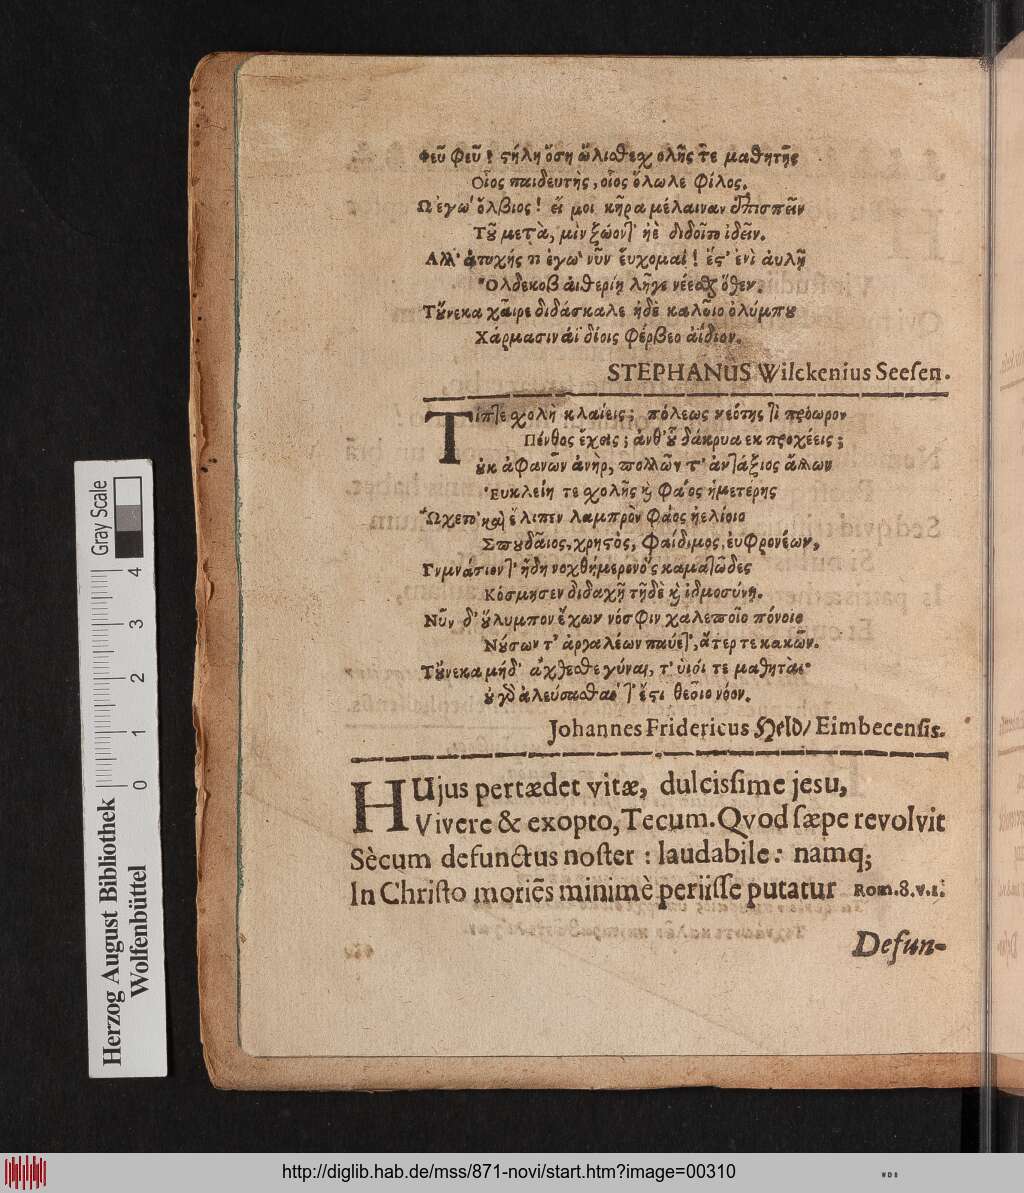 Φεῦ Φεῦ! στήλη ὅση ὤλισθε σχολῆς τε μαθητῆς
Οἷος παιδευτὴς, οἷος ὄλωλε φίλος.
Ω ἐγω' ὄλβιος! εἴ μοι κῆρα μέλαιναν ἐπισπεῖν
Τοῦ μετὰ, μὶν ζώοντ' ἠὲ διδοῖτο ἰδεῖν.
Αλλ' ἀτυχής τι ἐγω' νῦν εὔχομαι! ἔς' ἐνὶ ἀυλῇ
Τοὔνεκα χαῖρε διδάσκαλε ἠδὲ καλοῖο ὀλύμπου
Χάρμασιν ἀϊδίοις φέρβεο ἀΐδιον.
STEPHANUS Wilckenius Seesen.
Τίπτε σχολὴ κλαίεις; πόλεως νεότης τί πρόωρον
Πένθος ἔχεις; ἀνθ' οὗ δάκρυα εκ προχέεις;
οὐκ ἀφανῶν ἀνὴρ, πολλῶν τ' ἀντάξιος ἄλλων
Ευκλείη τε σχολῆς καὶ Φάος ἡμετέρης
Ὤχετο καὶ ἔλιπεν λαμπρὸν φάος ἠελίοιο
Σπουδαῖος, χρηστὸς, φαίδιμος, ἐυφρονέων,
Γυμνάσιον τ' ἤδη νοχθήμερον ὃς καματῶδες
Κόσμησεν διδαχῇ τῇδὲ καὶ ἰδμοσύνῃ.
Νῦν δ' οὔλυμπον ἔχων νόσφιν χαλεποῖο πόνοιο
Νούσων τ' ἀργαλέων παύετ', ἄτερ τε κακῶν.
Τοὔνεκα μήδ' ἄχθεσθε γύναι, τ' ὑιόι τε μαθηταὶ·
οὐ γὰρ ἀλεύσασθαι τ' ἔστι θεοῖο νόον.
Johannes Fridericus Held/ Eimbecensis.
HUjus pertædet vitæ, dulcissime jesu,
Vivere & exopto, Tecum. Qvod sæpe revolvit
Sècum defunctus noster: laudabile: namq;
In Christo moriẽs minimè periisse putatur Rom. 8. v. 1.
Defun-
Gray Scale
0 1 2 3 4
Herzog August Bibliothek
Wolfenbüttel
http://diglib.hab.de/mss/871-novi/start.htm?image=00310